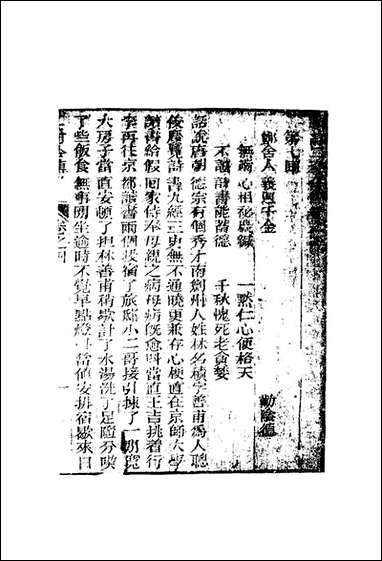 第七回
舍人義還千金 勸陰德
無端心相秘 緘 一點仁心便格天
不讀詩書能蓄德 千秋愧死老貪婪
話說唐朝德宗有個秀才南劍州人姓林名積字善甫爲人聰
俊廣覽詩書九經三史無不通曉更兼存心梗直在京師太學
讀書給假回家侍奉母親之病母病既愈叫當直王吉挑着行
李再往京都讀書兩個投宿了旅邸小二哥接引揀了一間寬
大房子當直安頓了擔林善甫稍歇討了水湯洗了足隨分喫
了些飯食無事閒坐逾時不覺早點燈叫當值安排宿歇來日
卷之四